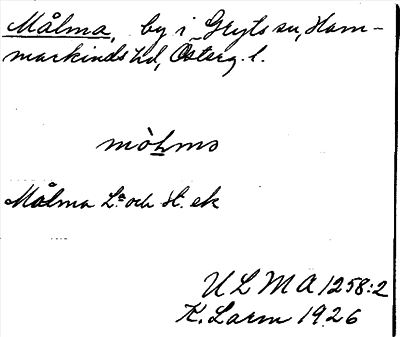 Målma, by i Gryts sn, Ham-
markinds hd, Österg. l.
mòhmo
Målma La och St. ek
ULMA 1258:2
K. Larm 1926